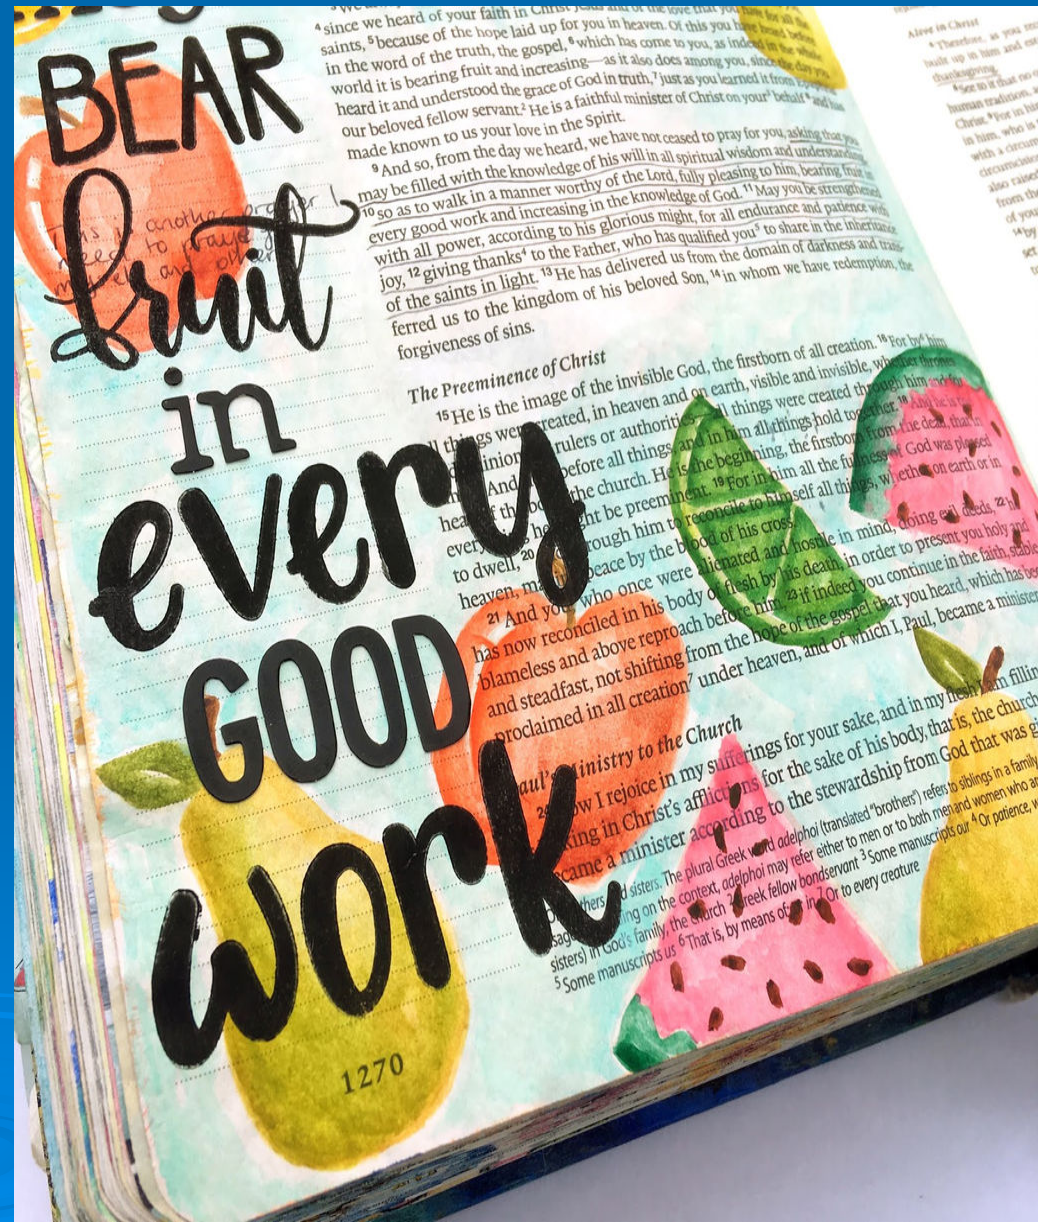 BEAR
fruit
in
every
GOOD
work
1270
This is another prayer I
need to pray for
4 since we heard of your faith in Christ Jesus and of the love that you have for all the
saints, 5 because of the hope laid up for you in heaven. Of this you have heard before
in the word of the truth, the gospel, 6 which has come to you, as indeed in the whole
world it is bearing fruit and increasing—as it also does among you, since the day you
heard it and understood the grace of God in truth, 7 just as you learned it from
our beloved fellow servant.2 He is a faithful minister of Christ on your3 behalf4 and has
made known to us your love in the Spirit.
9 And so, from the day we heard, we have not ceased to pray for you, asking that you
may be filled with the knowledge of his will in all spiritual wisdom and understanding,
10 so as to walk in a manner worthy of the Lord, fully pleasing to him, bearing fruit in
every good work and increasing in the knowledge of God. 11 May you be strengthened
with all power, according to his glorious might, for all endurance and patience with
joy, 12 giving thanks4 to the Father, who has qualified you5 to share in the inheritance
of the saints in light. 13 He has delivered us from the domain of darkness and trans-
ferred us to the kingdom of his beloved Son, 14 in whom we have redemption, the
forgiveness of sins.
The Preeminence of Christ
15 He is the image of the invisible God, the firstborn of all creation. 16 For by6 him
all things were created, in heaven and on earth, visible and invisible, whether thrones
rulers or authorities all things were created through him and for
And before all things, and in him all things hold together. 18 And he is the
the church. He is the beginning, the firstborn from the dead, that in
might be preeminent. 19 For in him all the fullness of God was pleased
to dwell, 20 through him to reconcile to himself all things, whether on earth or in
heaven, peace by the blood of his cross.
21 And you who once were alienated and hostile in mind, doing evil deeds, 22 h
has now reconciled in his body of flesh by his death, in order to present you holy and
blameless and above reproach before him. 23 if indeed you continue in the faith, stable
and steadfast, not shifting from the hope of the gospel that you heard, which has been
proclaimed in all creation7 under heaven, and of which I, Paul, became a minister
Paul's Ministry to the Church
Now I rejoice in my sufferings for your sake, and in my flesh I am filling
king in Christ's afflictions for the sake of his body, that is, the church
came a minister according to the stewardship from God that was
sisters. The plural Greek word adelphoi (translated "brothers") refers to siblings in a family
on the context, adelphoi may refer either to men or to both men and women who are
sisters) in God's family, the church 2 Greek fellow bondservant 3 Some manuscripts our 4 Or patience, w
5 Some manuscripts us 6 That is, by means of; or in 7 Or to every creature
Alive in Christ
6 Therefore, as you
built up in him and
thanksgiving.
8 See to it that no
human tradition,
Christ. 9 For in him
in him, who is
with a circum
circumcision
also raised
from the
of your
14 by
set